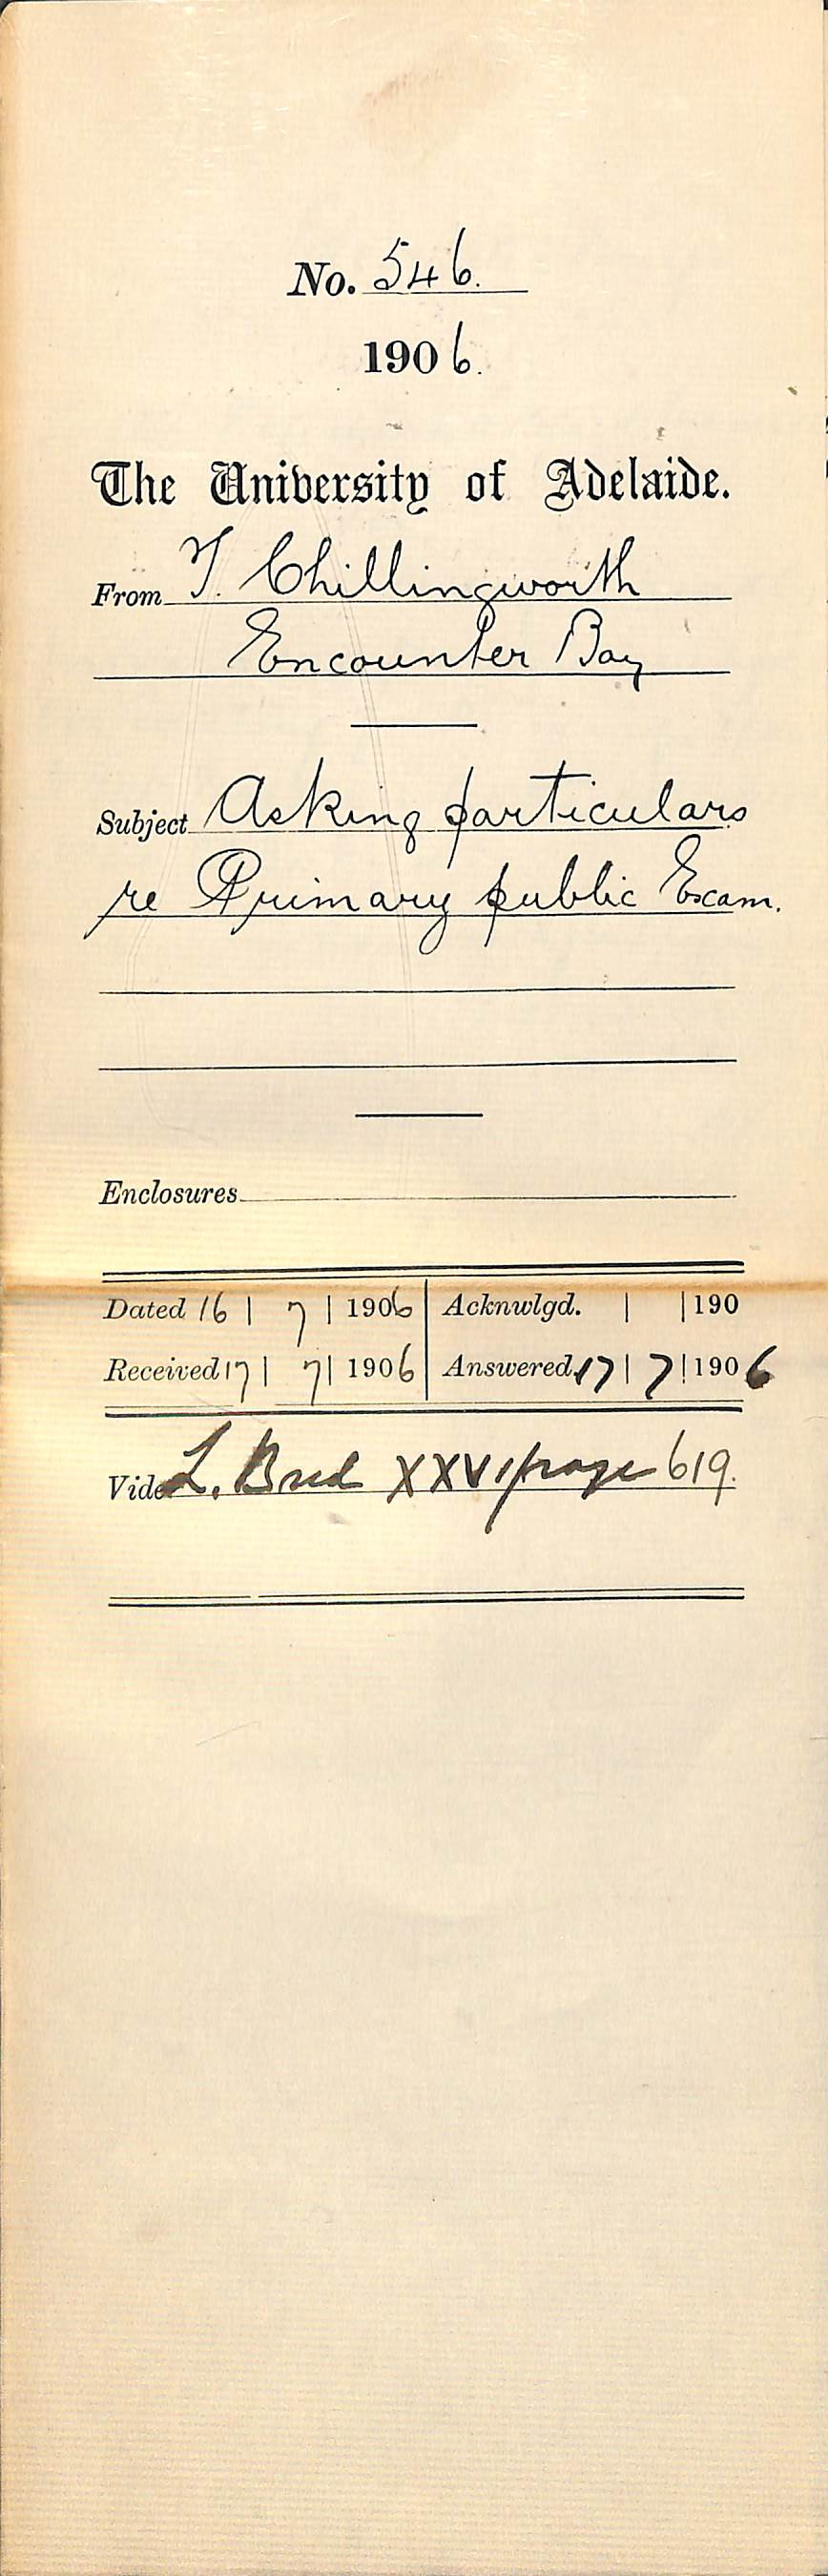 No. 546.
1906.
The University of Adelaide.
From T. Chillingworth
Encounter Bay
Subject Asking particulars
re Primary public Exam.
Enclosures
Dated 16 | 7 | 1906 Acknwlgd. | | 190
Received 17 | 7 | 1906 Answered 17 | 7 | 1906
Vide L. XXVI page 619.